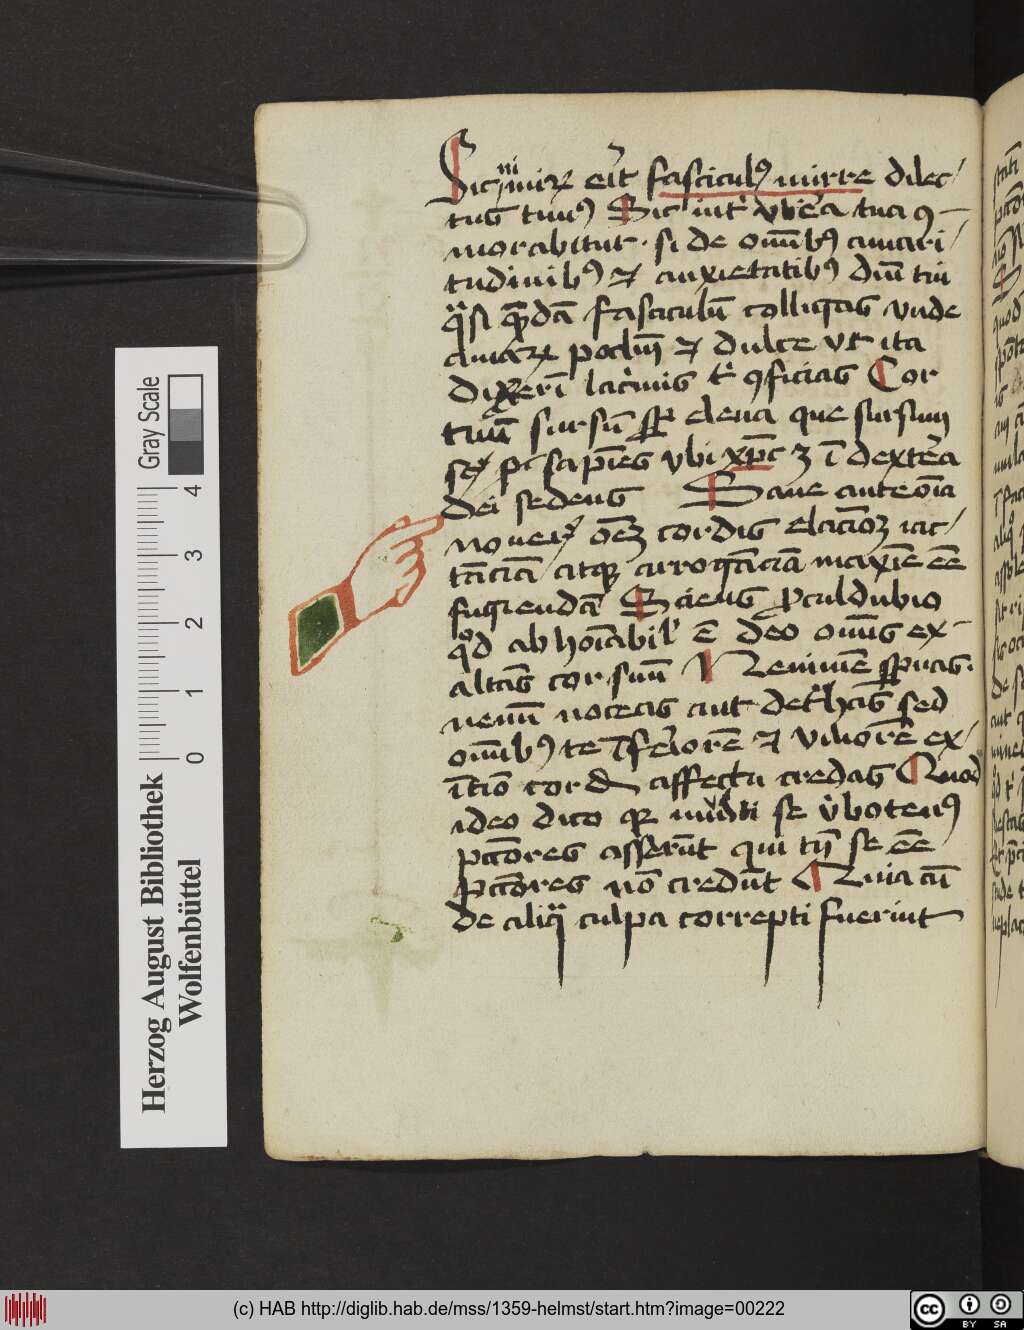 Sic nimirum erit fasciculus mirre dilec
tus tuus Sic inter ubera tua
morabitur si de omnibus amari
tudinibus et anxietatibus domini tui
quasi quemdam fasciculum colligas unde
amarum poculum et dulce ut ita
dixerim lacrimis tibi conficias Cor
tuum sursum semper eleva que sursum
sunt sapiens ubi xpc est in dextera
dei sedens Sane ante omnia
noveris omnem cordis elacionem iac
tanciam atque arroganciam maxime esse
fugiendam Sciens proculdubio
quod abhominabilis est deo omnis ex
altans cor suum Neminem spernas
nemini noceas aut detrahas sed
omnibus te inferiorem et viliorem ex
intimo cordis affectu credas Quod
ideo dico quia multi se verbotenus
peccatores asserunt qui tamen se esse
peccatores non credunt Quia cum
de aliqua culpa correpti fuerint
Gray Scale
4
3
2
1
0
Herzog August Bibliothek
Wolfenbüttel
(c) HAB http://diglib.hab.de/mss/1359-helmst/start.htm?image=00222
cc BY SA